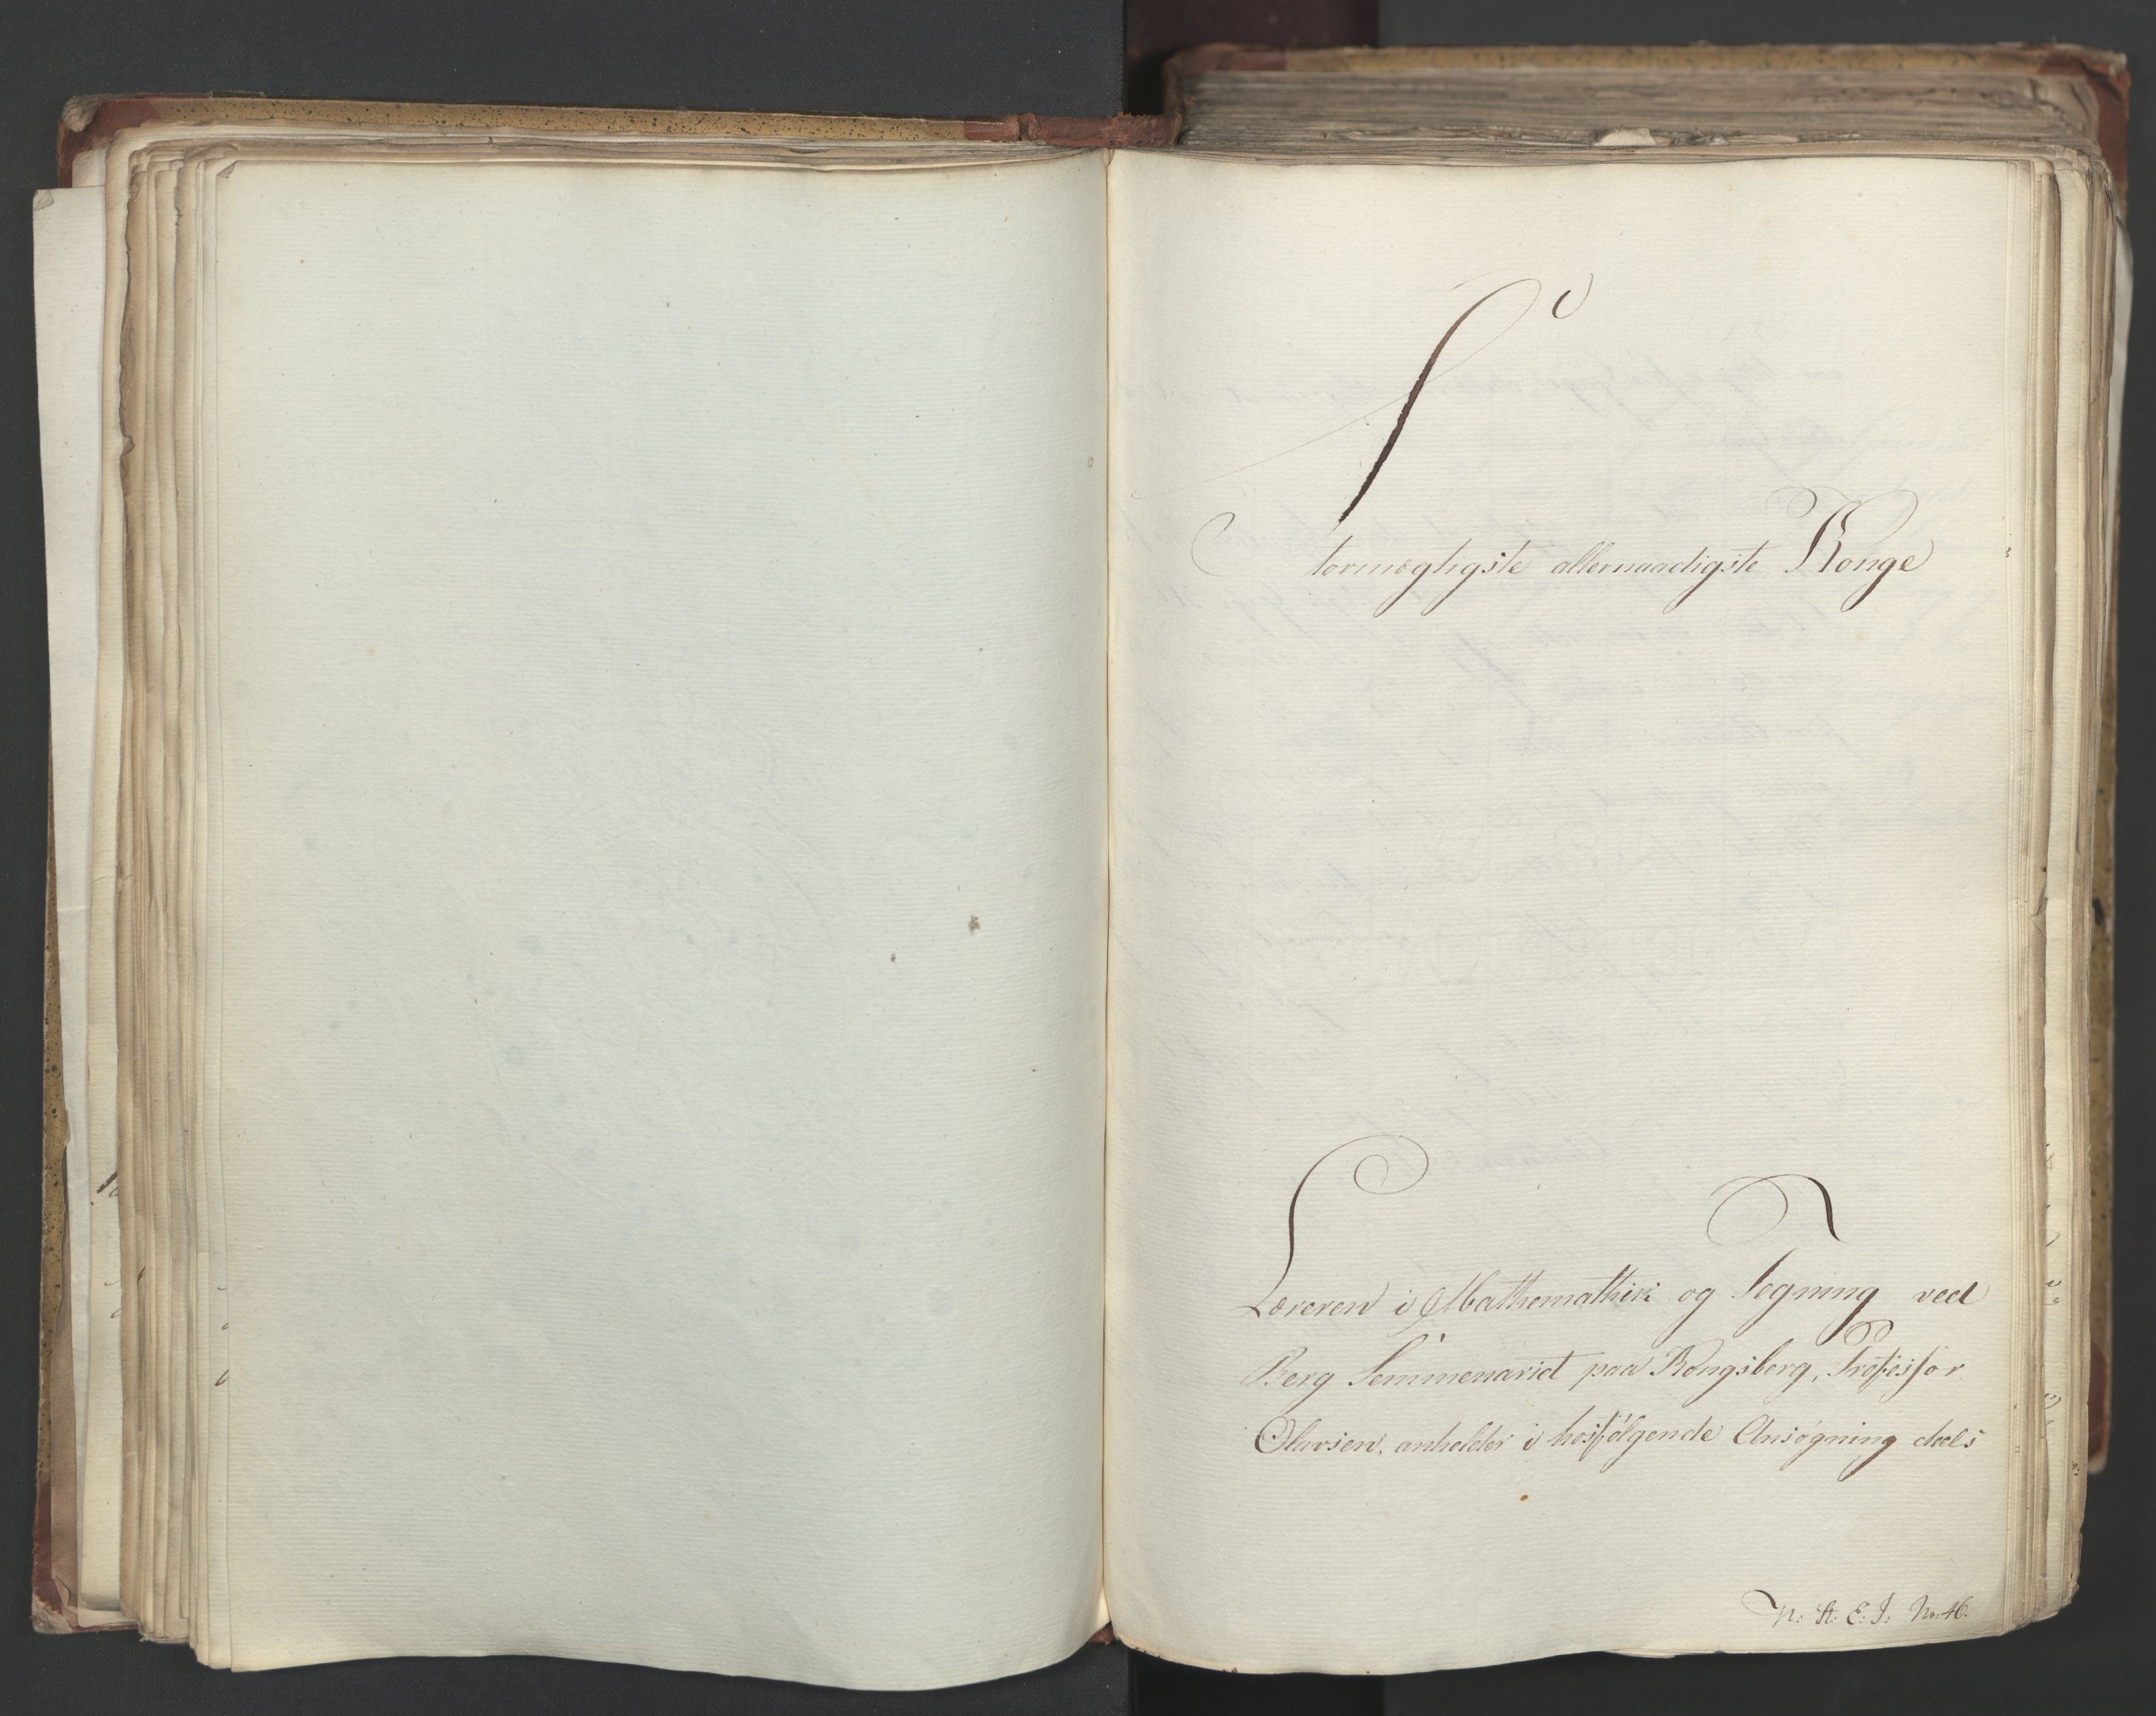 Stormægtigste allernaadigste Konge
Læreren i Mathemathik og Tegning ved
Berg Semmenariet paa Kongsberg, Professor
Olavsen, anholder i hosfølgende Ansøgning deels
N: St: E: I: No: 46.